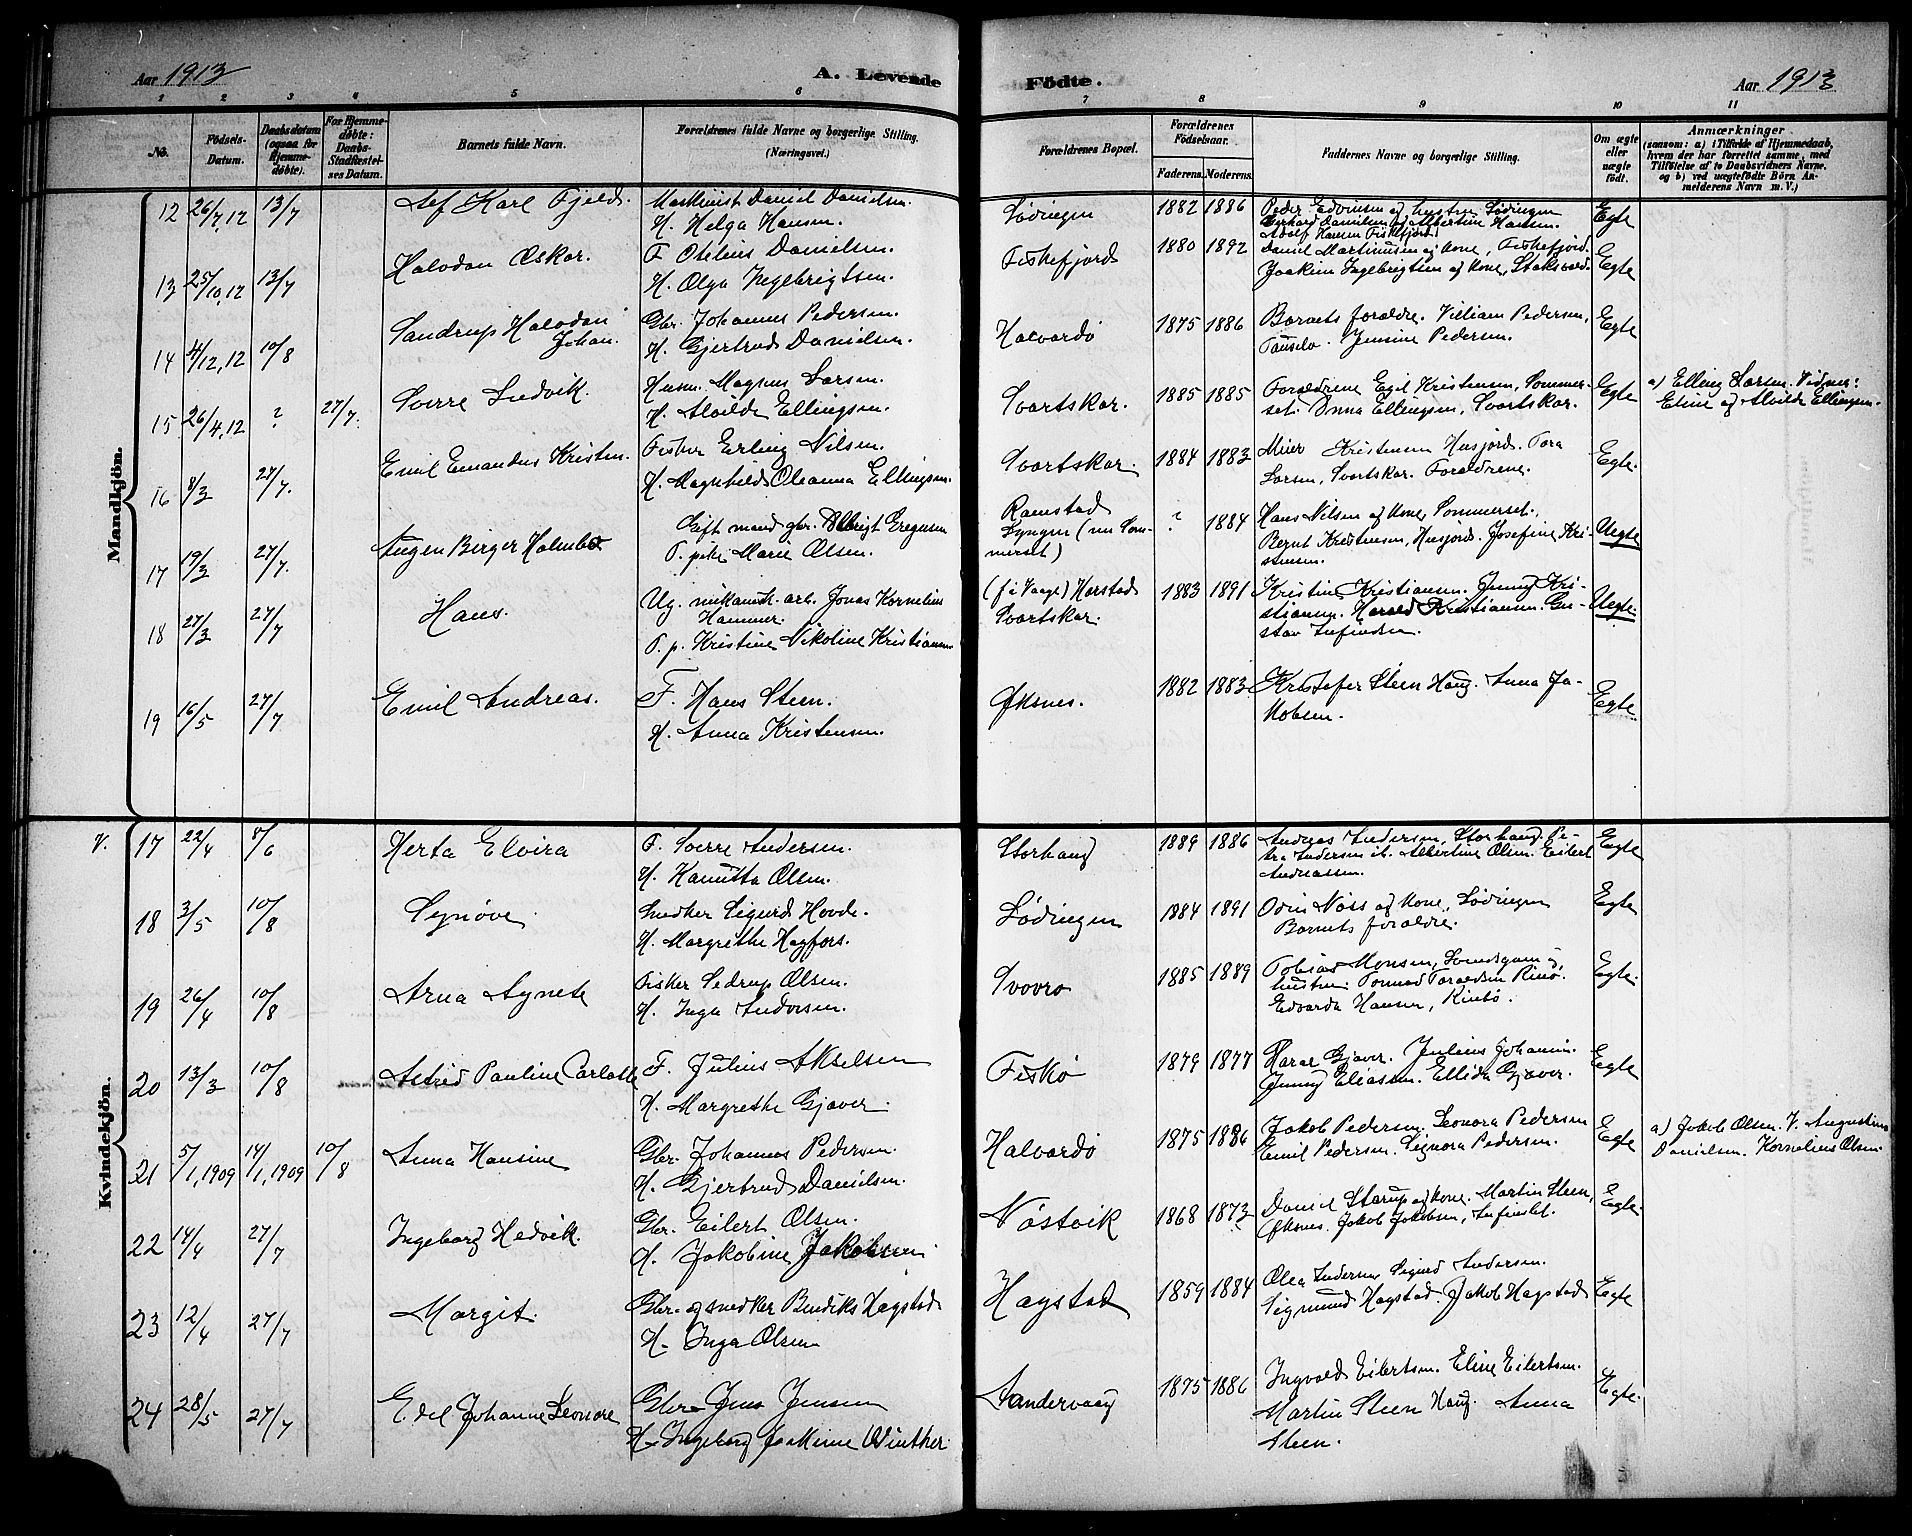 Aar 1913
A. Levende
Fødte.
Aar 1913
1 2 3 4 5 6 7 8 9 10 11
No.
Fødsels-
Datum.
Daabsdatum
(ogsaa for
Hjemme-
døbte).
For Hjemme-
døbte:
Daabs-
Stadfæstel-
ses Datum.
Barnets fulde Navn.
Forældrenes fulde Navne og borgerlige Stilling.
(Næringsvei.)
Forældrenes Bopæl.
Forældrenes
Fødselsaar.
Faderens. Moderens.
Faddernes Navne og borgerlige Stilling.
Om ægte
eller
uægte
født.
Anmærkninger
(saasom: a) i Tilfælde af Hjemmedaab,
hvem der har forrettet samme, med
Tilføielse af to Daabsvidners Navne,
og b) ved uægtefødte Børn An-
melderens Navn m. V.)
Mandkjøn.
12 26/7,12 13/7 Leif Karl Fjeld. Maskinist Daniel Danielsen.
H. Helga Hansen.
Lødingen 1882 1886 Peder Edvinsen og hustru Lødingen
Gerhard Danielsen og Albertine Hansen.
Adolf Hansen Fiskfjord.
Egte
13 25/10,12 13/7 Halvdan Oskar. F. Otelius Danielsen.
H. Olga Ingebrigtsen.
Fiskefjord 1880 1892 Daniel Martinusen og kone, Fiskefjord.
Joakim Ingebrigtsen og kone, Stoksvold.
Egte
14 4/12,12 10/8 Sandrup Halvdan
Johan.
Gbr. Johannes Pedersen.
H. Gjertrud Danielsen.
Halvardø 1875 1886 Barnets forældre. Villiam Pedersen,
Jensine Pedersen.
Egte
15 26/4,12 ? 27/7. Sverre Ludvik. Husm. Magnus Larsen.
H. Alvilde Ellingsen.
Svartskar. 1885 1885 Forældrene Egil Kristensen, Sommer-
set. Anna Ellingsen, Svartskar.
Egte a) Elling Larsen. Vidner:
Eline og Alvilde Ellingsen.
16 8/3 27/7. Emil Emandus Kristen. Fisker Erling Nilsen.
H. Magnhild Oleanna Ellingsen.
Svartskar. 1884 1883 Meier Kristensen Husjord. Tora
Larsen, Svartskar. Forældrene.
Egte.
17 19/3 27/7. Augen Birger Holmbo Gift mand gbr. Albrigt Gregusen
T. pike Marie Olsen.
Ramstad
Lyngen (nu Som-
merset)
? 1884 Hans Nilsen og kone, Sommerset.
Bernt Kristensen, Husjord. Josefine Kri-
stensen.
Uegte
18 27/3 27/7 Hans. Ug. mekanisk. arb. Jonas Kornelius
Hammer.
T. p. Kristine Nikoline Kristiansen
(f i Vaage) Harstad
Svartskar.
1883 1891 Kristine Kristiansen. Jenny Kri-
stiansen. Harald Kristiansen. Gu-
stav
Uegte.
19 16/5 27/7 Emil Andreas. F. Hans Steen.
H. Anna Kristensen.
Øksnes. 1882 1883 Kristofer Steen Haug. Anna Ja-
kobsen.
Egte.
Kvindekjøn.
V. 17 22/4 8/6 Herta Elvira F. Sverre Andersen.
H. Kamitta Olsen.
Storhaug 1889 1886 Andreas Andersen, Storhaug. Pe-
tra Andersen ib. Albertine Olsen. Eilert
Andreassen.
Egte
18 3/5 10/8 Synøve. Snedker Sigurd Hovde.
H. Margrethe Hagfors.
Lødingen 1884 1891 Odin Næss og kone, Lødingen
Barnets forældre.
Egte
19 26/4 10/8 Arna Agnete Fisker Sedrup Olsen.
H. Inga Andersen.
Svovra 1885 1889 Tobias Monsen,
hustru. Rinø.
Edvarda Hansen, Rinbø.
Egte.
20 13/3 10/8 Astrid Pauline Carlotte F. Julius Akselsen
H. Margrethe Gjæver.
Fiskø 1879 1877 Gjæver. Julius Johansen.
Jenny Eliasen. Ellida Gjæver.
Egte
21 5/1,1909 14/1,1909 10/8 Anna Hansine Gbr. Johannes Pedersen.
H. Gjertrud Danielsen.
Halvardø 1875 1886 Jakob Pedersen. Leonora Pedersen
Emil Pedersen. Signora Pedersen.
Egte a) Jakob Olsen. V. Augustinus
Danielsen. Kornelius Olsen.
22 14/4 27/7 Ingeborg Hedvik. Gbr. Eilert Olsen.
H. Jakobine Jakobsen.
Nøstvik 1868 1873 Daniel Starup og kone. Martin Steen,
Øksnes. Jakob Jakobsen,
Egte.
23 12/4 27/7 Margit. Gbr. og snedker Bendiks Hagstad
H. Inga Olsen
Hagstad 1859 1884 Olea Andersen Sigurd Andersen.
Sigmund Hagstad. Jakob Hagstad
Egte
24 28/5 27/7 Edel Johanne Leonore Gbr. Jens Jensen
H. Ingeborg Joakime Winther.
Sandervaag 1875 1886 Ingvald Eilertsen. Eline Eilertsen.
Martin Steen Haug. Anna
Steen.
Egte.